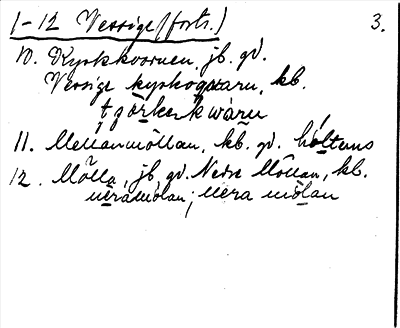 1-12 Vessige (forts.) 3.
10. Kyrkkvarnen, jb. gd.
Vessige kyrkoqvarn, kb.
11. Mellanmöllan, kb. gd. hóltens
12. Mölla, jb, gd. Nedre Möllan, kb.
neramölan; nera mölan